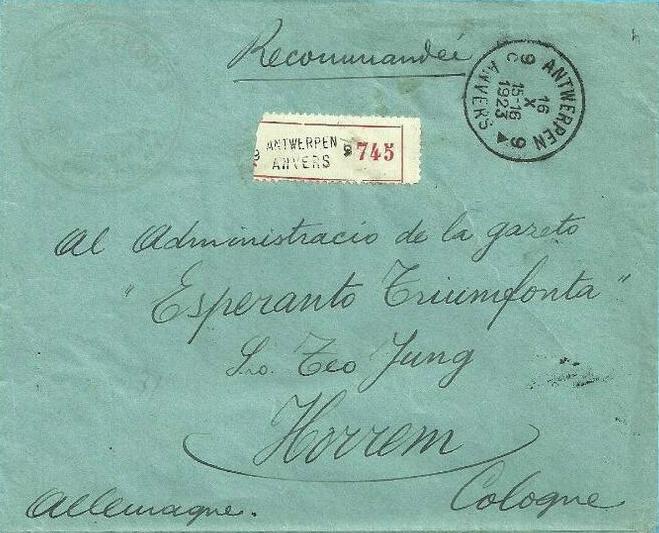 Recommandée
9 ANTWERPEN 9
16
X
15-16
1923
C ANVERS
ANTWERPEN
ANVERS
9 745
Al Administracio de la gazeto
"Esperanto Triumfonta"
Sro. Teo Jung
Horrem
Cologne
Allemagne.